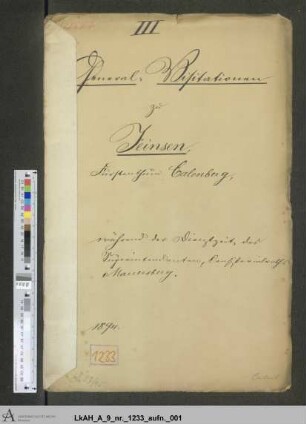 III
General-Visitationen
zu
Jeinsen,
Fürstenthum Calenberg,
während der Dienstzeit des
Superintendenten,
1894.
1233
LkAH_A_9_nr._1233_aufn._001